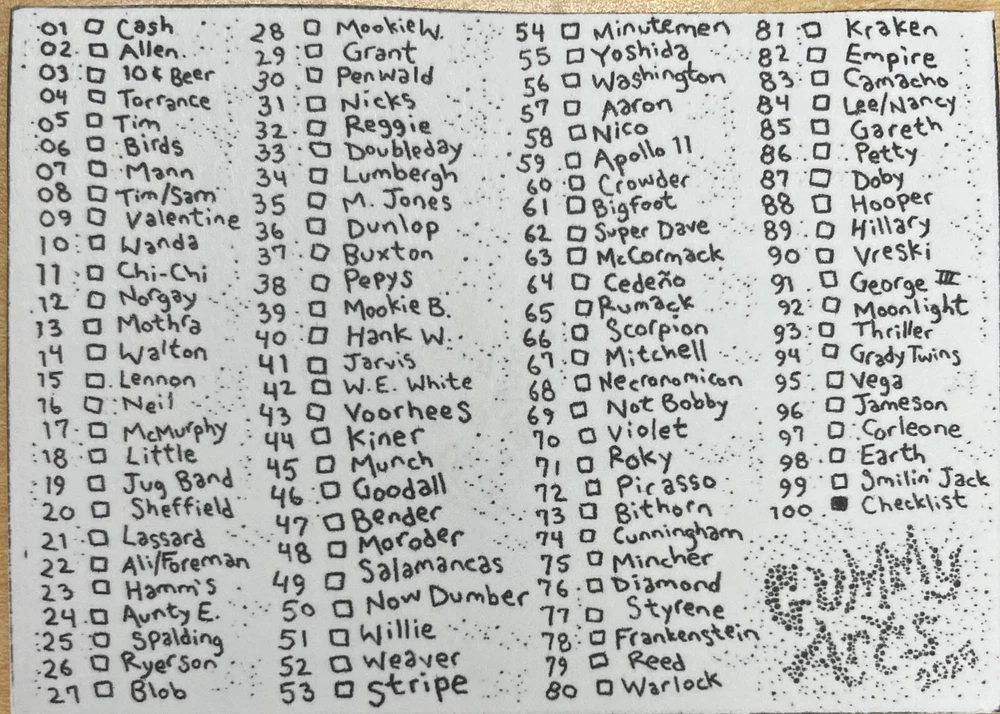 01 Cash
02 Allen
03 10¢ Beer
04 Torrance
05 Tim
06 Birds
07 Mann
08 Tim/Sam
09 Valentine
10 Wanda
11 Chi-Chi
12 Norgay
13 Mothra
14 Walton
15 Lennon
16 Neil
17 McMurphy
18 Little
19 Jug Band
20 Sheffield
21 Lassard
22 Ali/Foreman
23 Hamm's
24 Aunty E.
25 Spalding
26 Ryerson
27 Blob
28 Mookie W.
29 Grant
30 Penwald
31 Nicks
32 Reggie
33 Doubleday
34 Lumbergh
35 M. Jones
36 Dunlop
37 Buxton
38 Pepys
39 Mookie B.
40 Hank W.
41 Jarvis
42 W.E. White
43 Voorhees
44 Kiner
45 Munch
46 Goodall
47 Bender
48 Moroder
49 Salamancas
50 Now Dumber
51 Willie
52 Weaver
53 Stripe
54 Minutemen
55 Yoshida
56 Washington
57 Aaron
58 Nico
59 Apollo 11
60 Crowder
61 Bigfoot
62 Super Dave
63 McCormack
64 Cedeño
65 Rumack
66 Scorpion
67 Mitchell
68 Necronomicon
69 Not Bobby
70 Violet
71 Roky
72 Picasso
73 Bithorn
74 Cunningham
75 Mincher
76 Diamond
77 Styrene
78 Frankenstein
79 Reed
80 Warlock
81 Kraken
82 Empire
83 Camacho
84 Lee/Nancy
85 Gareth
86 Petty
87 Doby
88 Hooper
89 Hillary
90 Vreski
91 George III
92 Moonlight
93 Thriller
94 Grady Twins
95 Vega
96 Jameson
97 Corleone
98 Earth
99 Smilin' Jack
100 Checklist
GUMMY
ArtS